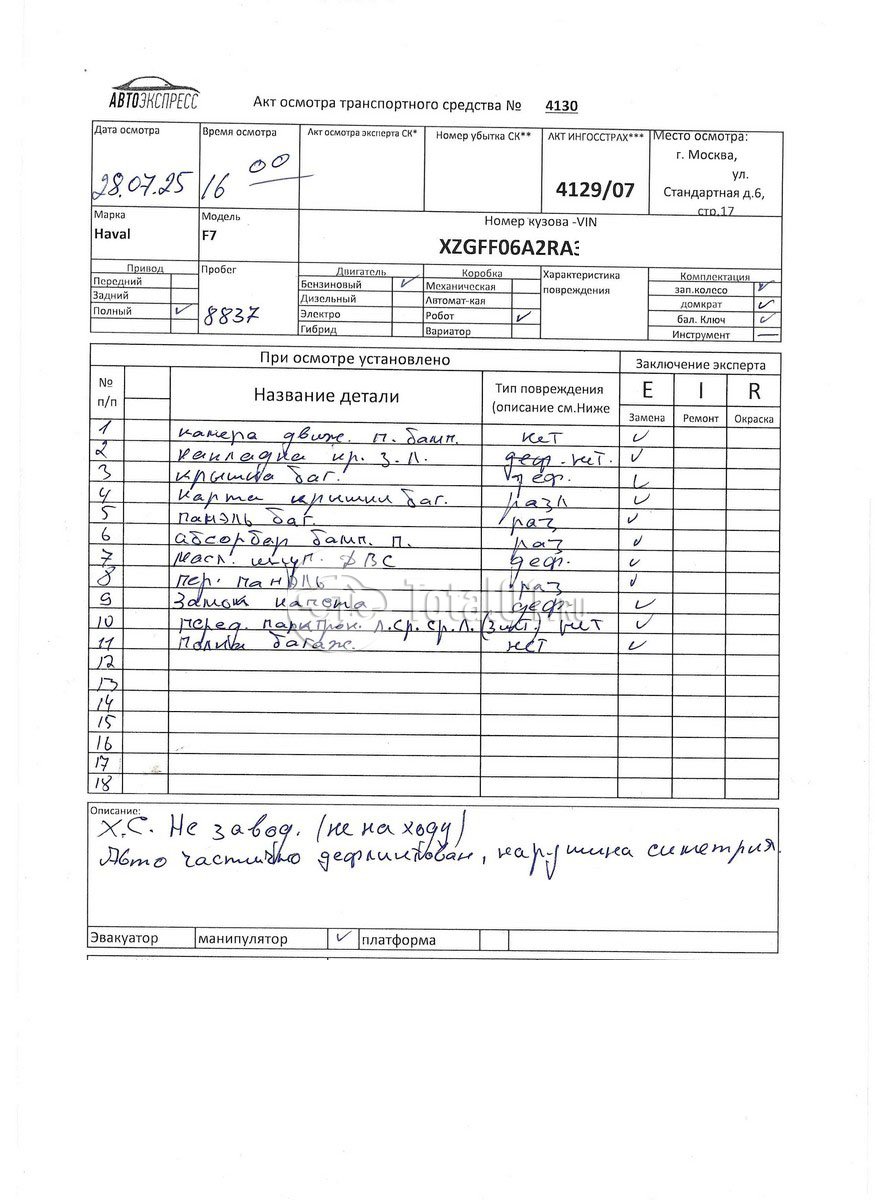 АВТОЭКСПРЕСС
Акт осмотра транспортного средства № 4130
Дата осмотра Время осмотра Акт осмотра эксперта СК* Номер убытка СК** АКТ ИНГОССТРАХ*** Место осмотра:
28.07.25 16 00 4129/07 г. Москва,
ул.
Стандартная д.6,
стр.17
Марка Модель Номер кузова -VIN
Haval F7 XZGFF06A2RA3
Привод Пробег Двигатель Коробка Характеристика повреждения Комплектация
Передний Бензиновый ✓ Механическая зап.колесо ✓
Задний Дизельный Автомат-кая домкрат ✓
Полный ✓ 8837 Электро Робот ✓ бал. Ключ ✓
Гибрид Вариатор Инструмент —
При осмотре установлено Заключение эксперта
№ п/п Название детали Тип повреждения (описание см.Ниже E I R
Замена Ремонт Окраска
1 камера движ. п. бамп. нет ✓
2 накладка кр. з. л. деф. нет. ✓
3 крышка баг. деф. ✓
4 карта крышки баг. разл ✓
5 панэль баг. раз ✓
6 абсорбер бамп. п. раз ✓
7 масл. щуп. ДВС деф. ✓
8 пер. панэль раз ✓
9 Замок капота деф. ✓
10 перед. парктрон. л.ср. ср.л. нет ✓
11 Полка багаж. нет ✓
12
13
14
15
16
17
18
TotalCar.ru
Описание:
Х.С. Не завод. (не на ходу)
Авто частично нарушина симетрия.
Эвакуатор манипулятор ✓ платформа